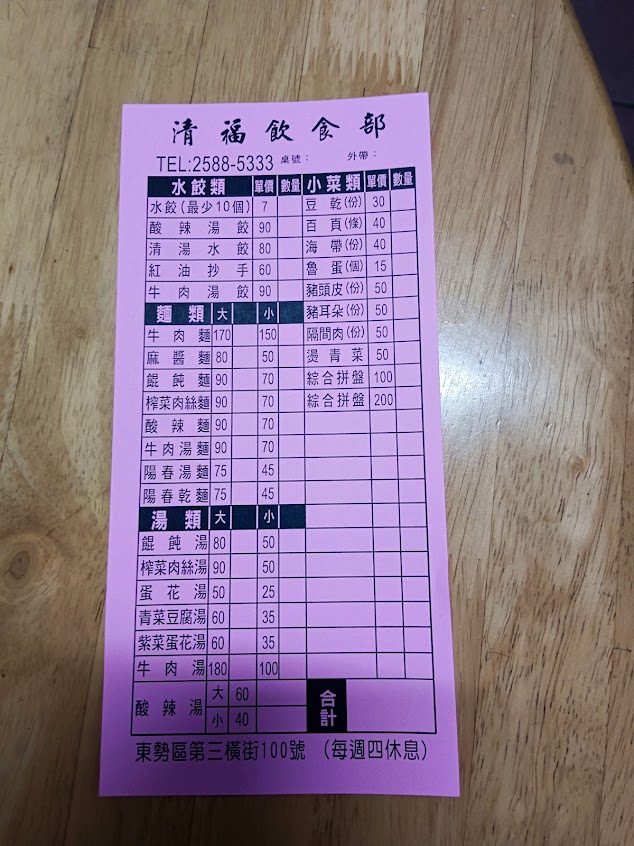 清福飲食部
TEL:2588-5333 桌號： 外帶：
水餃類 單價 數量
水餃(最少10個) 7
酸辣湯餃 90
清湯水餃 80
紅油抄手 60
牛肉湯餃 90
麵類 大 小
牛肉麵 170 150
麻醬麵 80 50
餛飩麵 90 70
榨菜肉絲麵 90 70
酸辣麵 90 70
牛肉湯麵 90 70
陽春湯麵 75 45
陽春乾麵 75 45
湯類 大 小
餛飩湯 80 50
榨菜肉絲湯 90 50
蛋花湯 50 25
青菜豆腐湯 60 35
紫菜蛋花湯 60 35
牛肉湯 180 100
酸辣湯 大 60
小 40
小菜類 單價 數量
豆乾(份) 30
百頁(條) 40
海帶(份) 40
魯蛋(個) 15
豬頭皮(份) 50
豬耳朵(份) 50
隔間肉(份) 50
燙青菜 50
綜合拼盤 100
綜合拼盤 200
合計
東勢區第三橫街100號 (每週四休息)